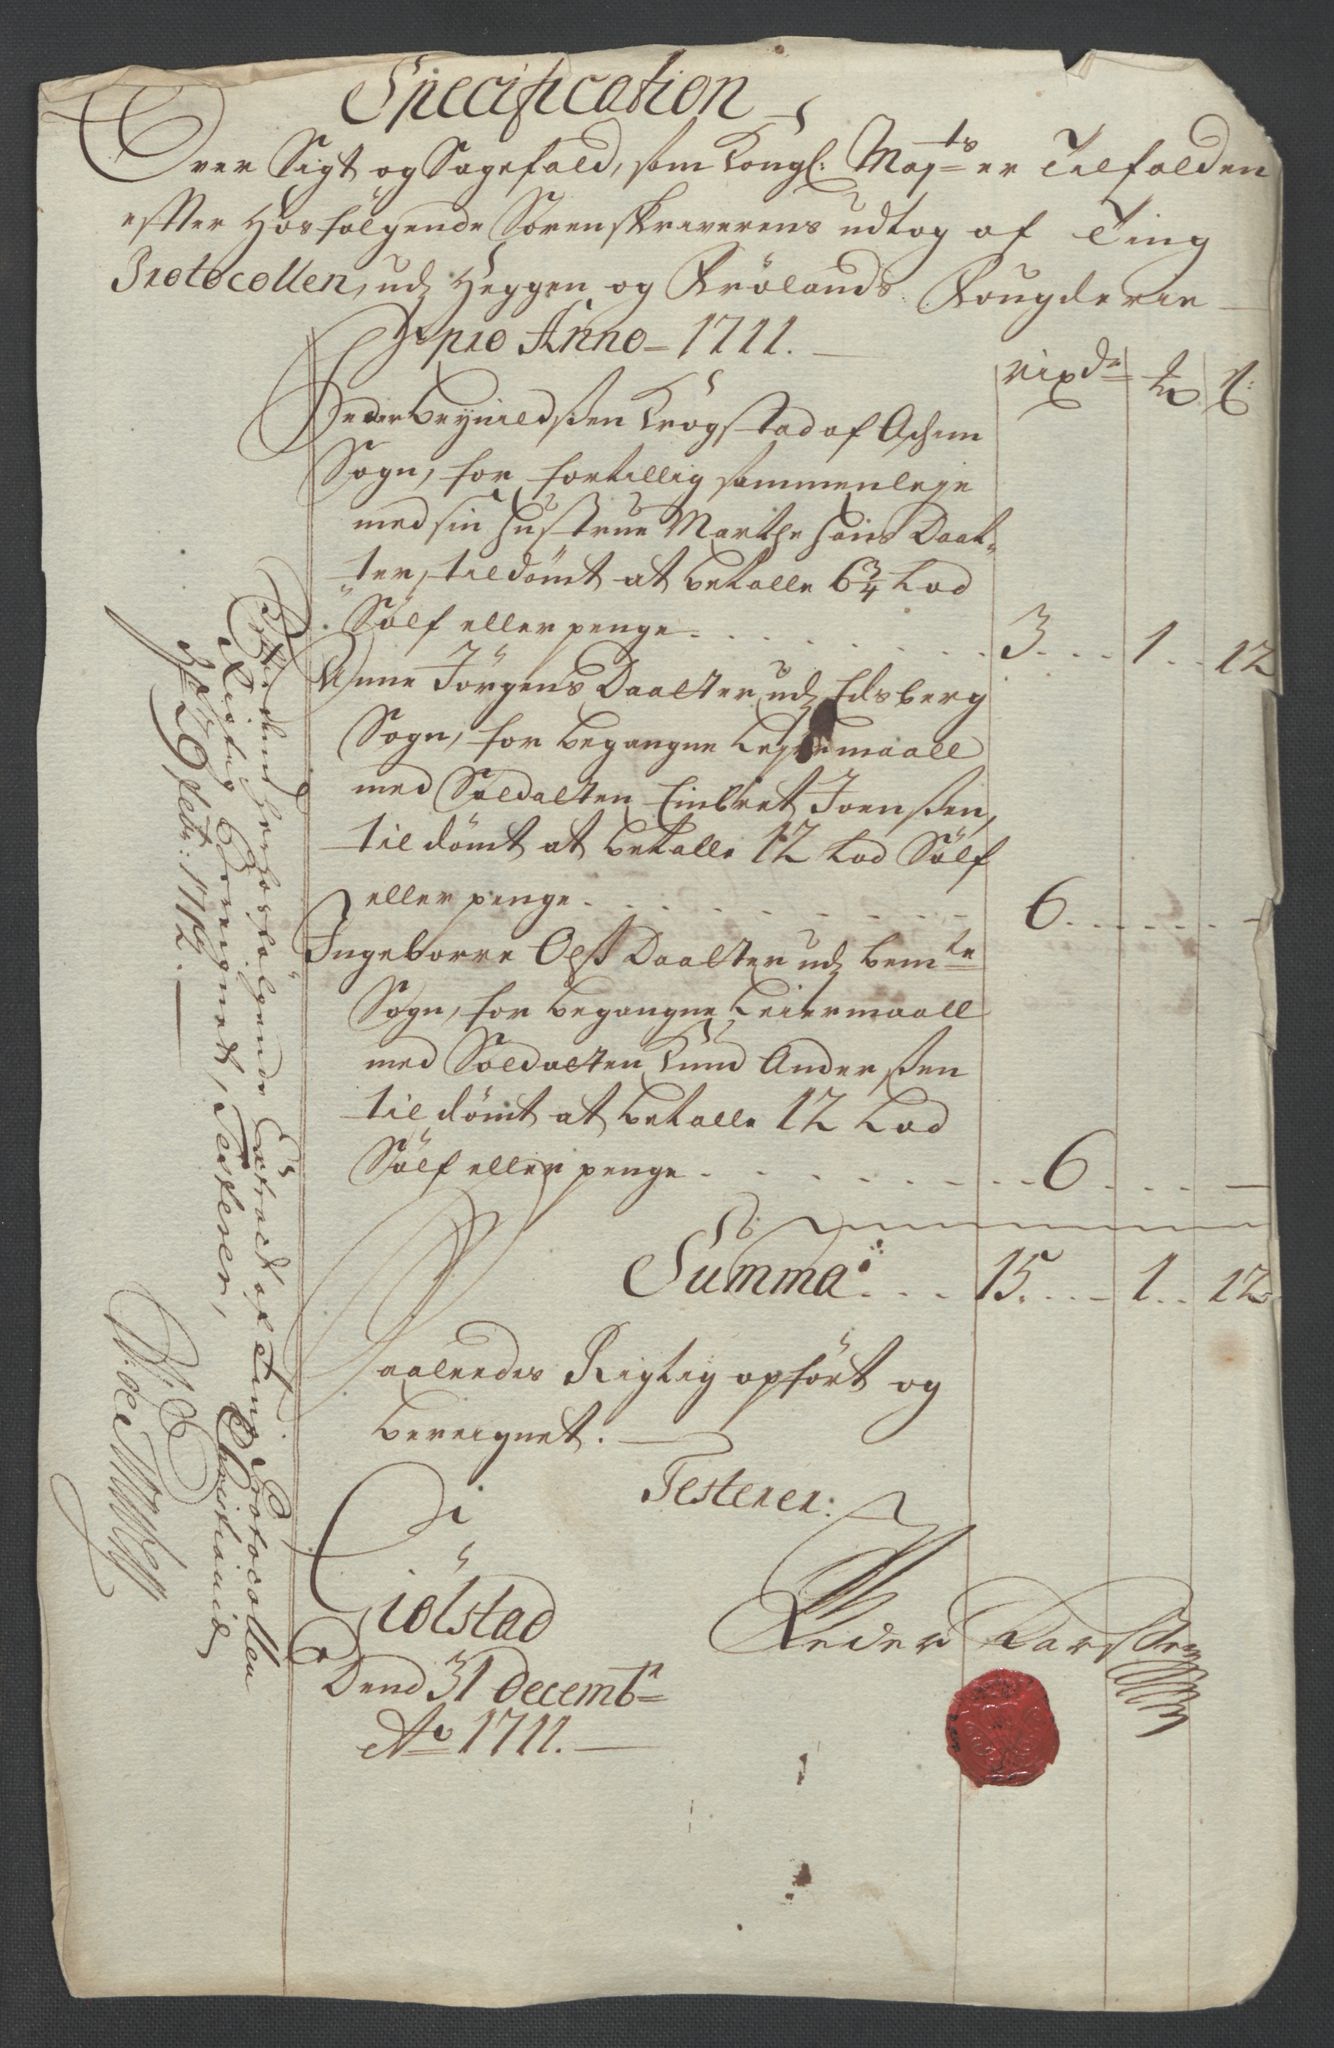 Specification
Over Sigt og Sagefald, som Kongl: Majts er Tilfalden
efter Hosfölgende Sorenskriverens udtog af Ting
Protocollen, udj Heggen og Frölands Fougderie
pro Anno 1711.
rixdr ß
Peder Reynieldßen Krogstad af Aschim
Sogn, for fortillig sammenleye
med sin Hustrue Marthe Hans Daat-
ter, tildömt at betalle 6 3/4 Lod
Sölf eller penge . . . 3 . . . 1 . . 12
Anne Jörgens Daatter udj Edsberg
Sogn, for begangne Leyermaall
med Soldatten Einbret Joenßen,
til dömt at betalle 12 Lod Sölf
eller penge . . . 6 . . . -
Ingeborre Olß Daatter udj bemte
Sogn, for begangne Leiermaall
med Soldatten Knud Anderßen
til dömt at betalle 12 Lod
Sölf eller penge . . . 6 . . . -
Summa . . . 15 . . . 1 . . 12
Saaleedes Rigtig opfört og
bereignet.
Testerer:
Giölstad
Dend 31 decembr
Ao 1711.
Peder Karsten
Efter dend herhosfölgende Extract af Ting Protocollen
Rigtig Beregnet, Testerer, Christiania
1712.